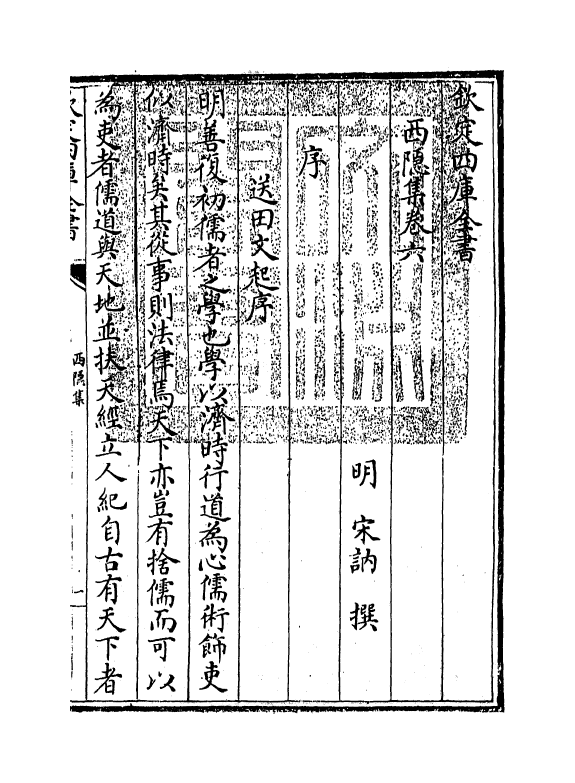 欽定四庫全書
西隱集卷六
明 宋訥 撰
序
送田文起序
明善復初儒者之學也學以濟時行道為心儒術飾吏
似濟時矣其從事則法律焉天下亦豈有捨儒而可以
為吏者儒道與天地並扶天經立人紀自古有天下者
西隱集
一